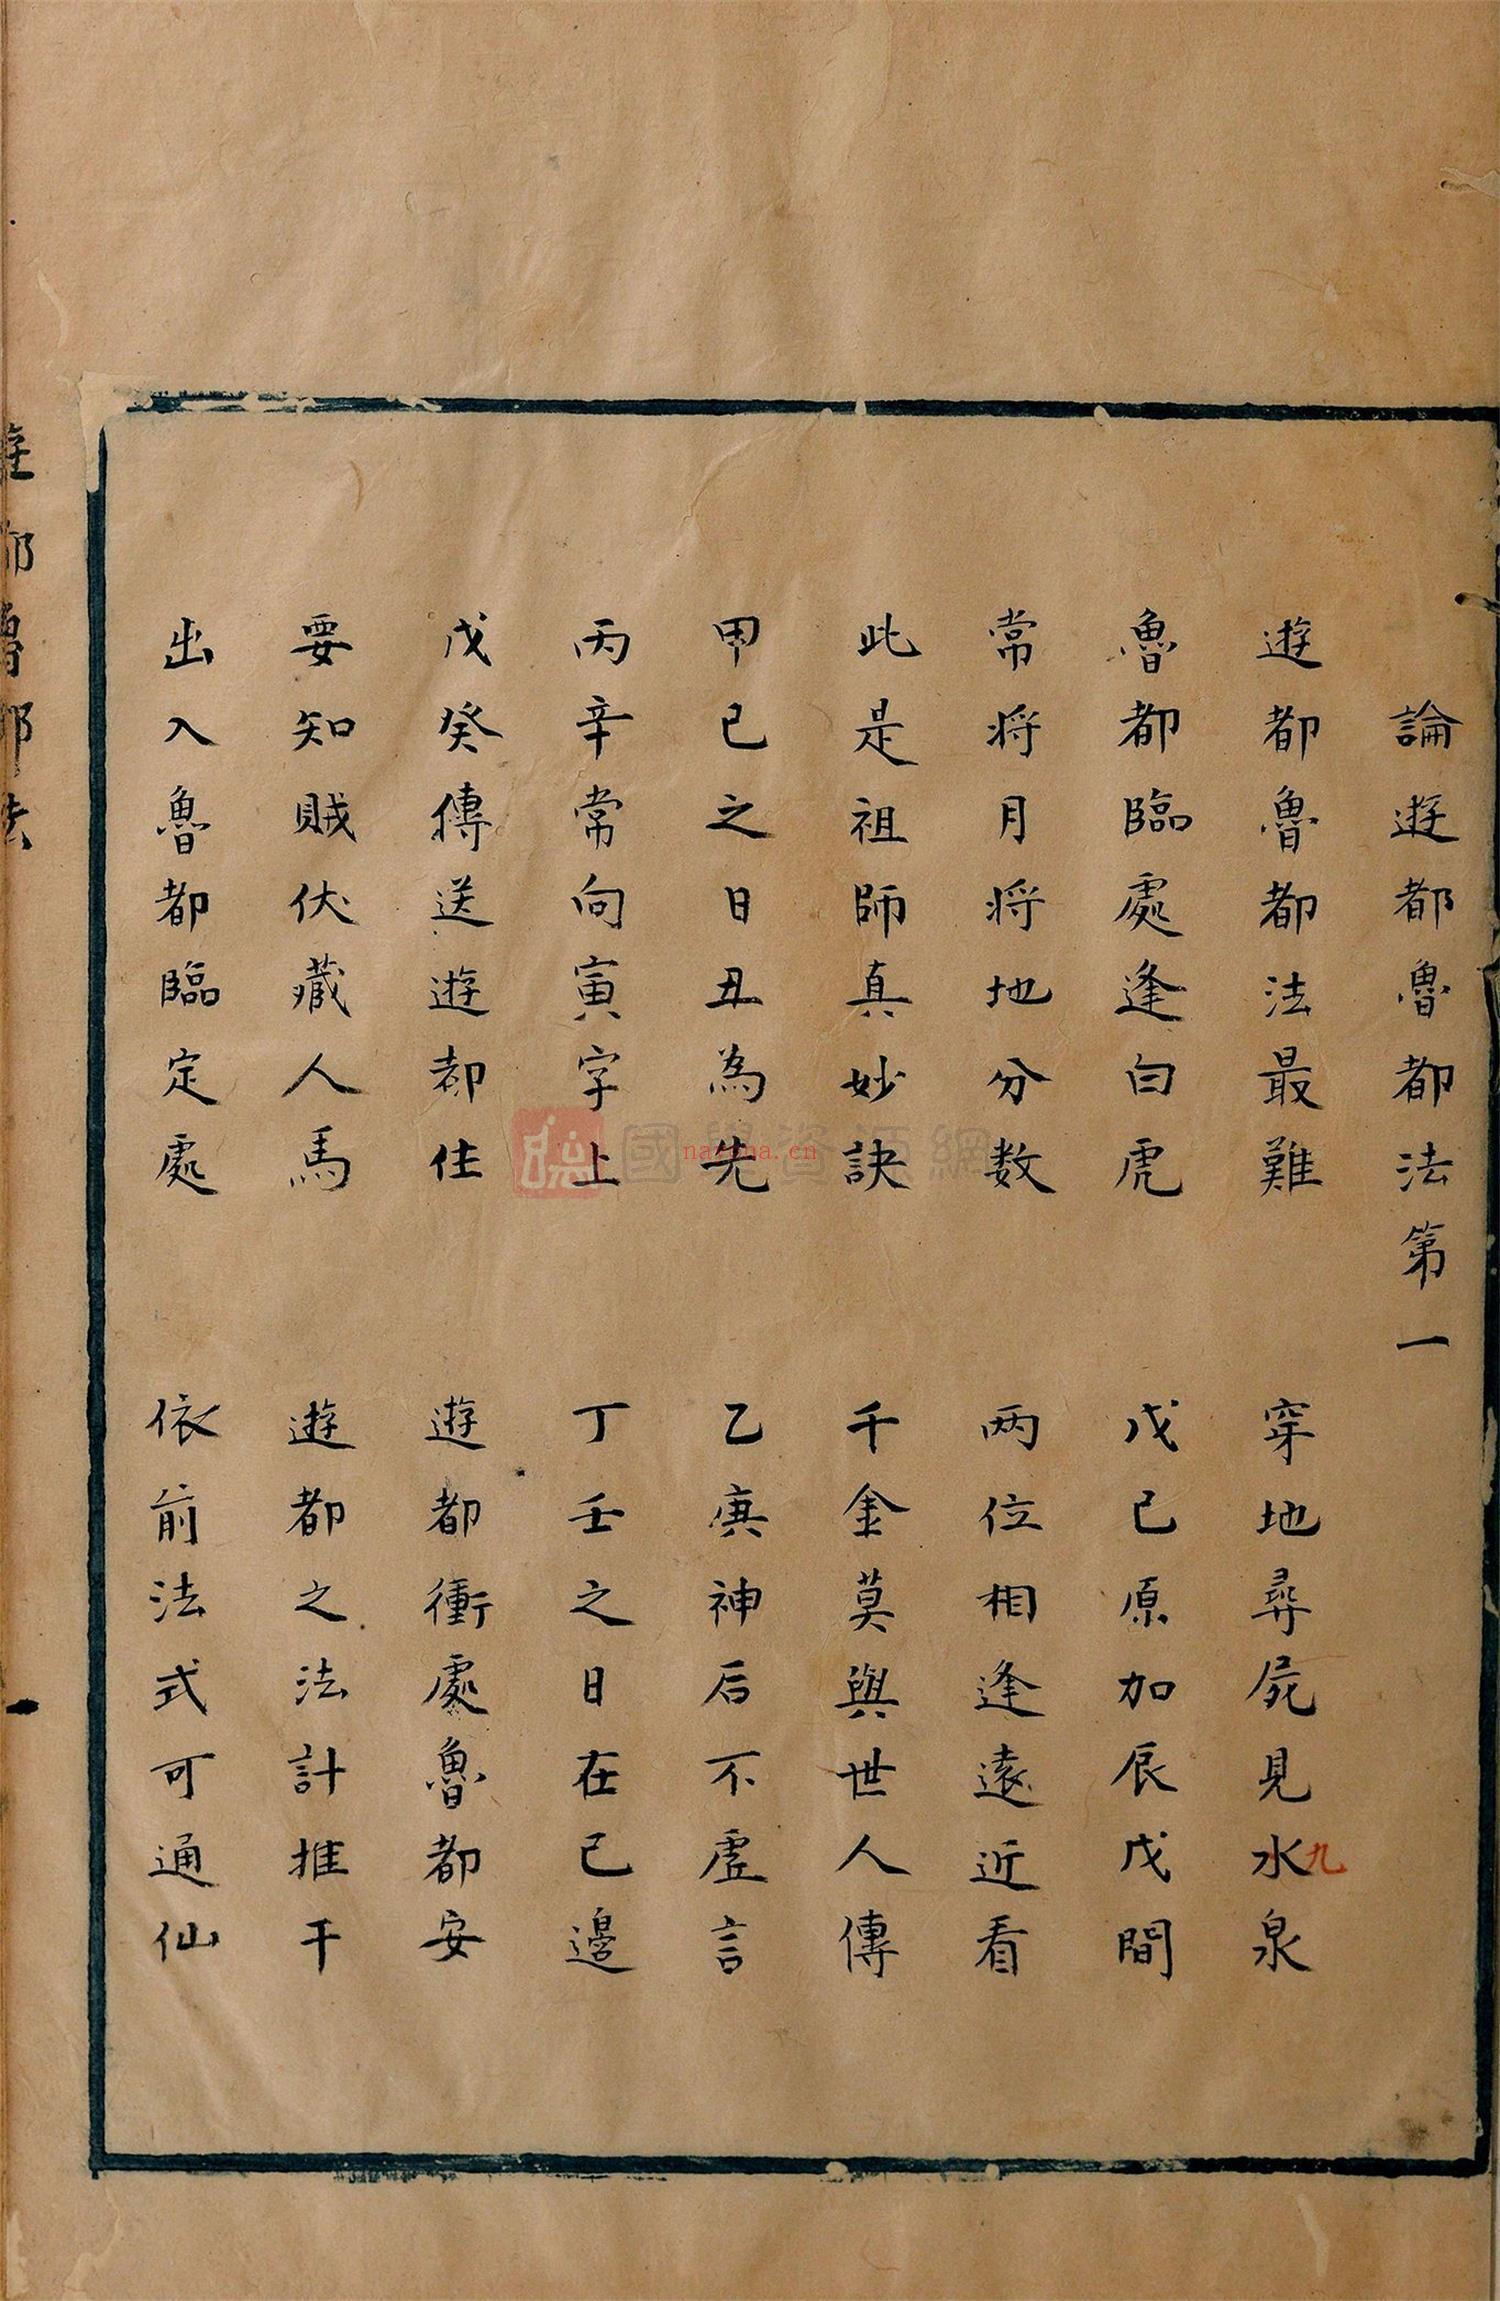 論遊都魯都法第一
遊都魯都法最難 穿地尋屍見水泉
九
魯都臨處逢白虎 戊己原加辰戊間
常將月將地分数 两位相逢遠近看
此是祖師真妙訣 千金莫與世人傳
甲己之日丑為先 乙庚神后不虛言
丙辛常向寅字上 丁壬之日在巳邊
戊癸傳送遊都住 遊都衝處魯都安
要知賊伏藏人馬 遊都之法計推干
出入魯都臨定處 依前法式可通仙
遊都魯都法
國學資源網
nayona.cn